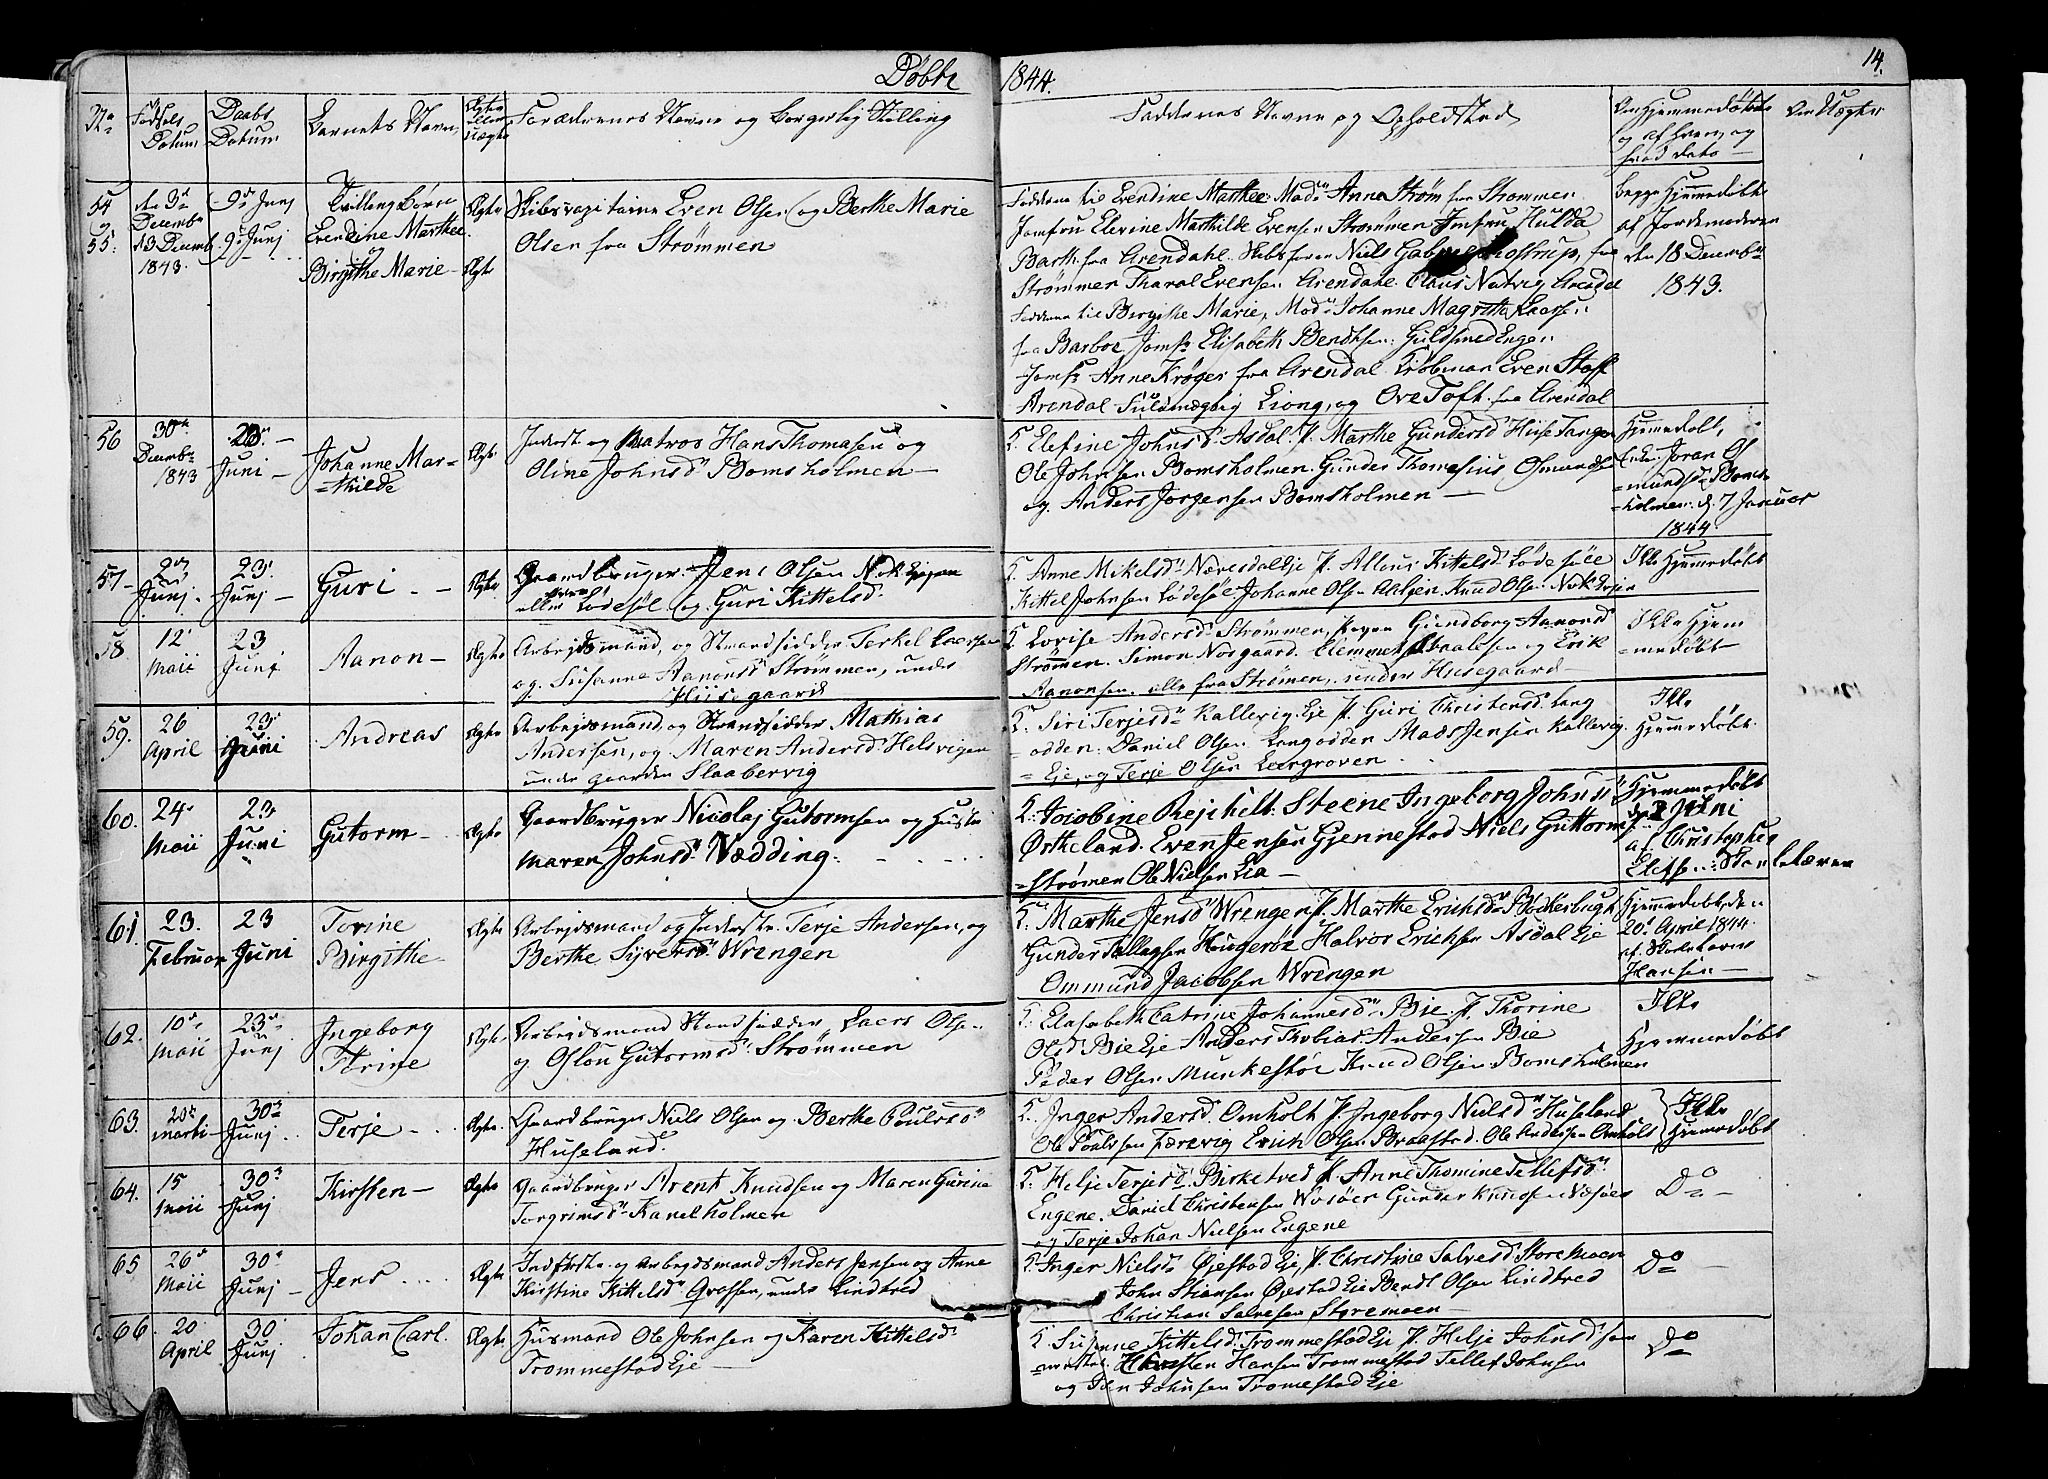 Døbte 1844. 14.
No Fødsels Datum Daabs Datum Barnets Navn Ægte eller Uægte Forældrenes Navne og borgerlig Stilling Faddernes Navne og Opholdsted Om Hjemmedøbte og af hvem og hvad dato Om Uægte
54 og 55. de 3de Decembr d 3 Decemb 1843. 9de Junj 9de Junj Tvilling Børn Evendine Marthee Birgithe Marie Ægte Ægte
Skibscapitaine Even Olsen og Berthe Marie
Olsen fra Strømmen
Fadderne til Evendine Marthee Mad. Anne Strøm fra Strømmen
Jomfru Elevine Marthilde Evensen Strømmen Jomfru Hulda
Barth fra Arendahl. Niels Gabriel fra
Strømmen Tharal Evensen Arendahl. Claus Natvig Arendal
Fadderne til Birgithe Marie, Mad. Johanne Magrethe
fra Barboe Jomfr Elisabeth Bendtsen: Guldsmed Engen
Jomfr Anne Krøger fra Arendal Kjøbman Even
Arendal og Ove Toft fra Arendal
begge Hjemmedøbte
af Jordemoderen
den 18 Decembr
1843.
56 30te Decembr 1843 23de Juni Johanne Marthilde Ægte
Inderst og Matros Hans Thomasen og
Oline Johnsd Bomsholmen
F. Elefine Johnsd. Asdal P. Marthe Gundersd
Ole Johnsen Bomsholmen. Gunder Thomesius
og Anders Jørgensen Bomsholmen
Hjemedøbt,
Joran Os
mundsd Boms
holmen d. 7 Januar
1844.
57 2den Junj. 23. Junj Guri Ægte
Gaardbruger Jens Olsen
eller Lødesøl og Guri Kittelsd.
F. Anne Mikelsd P. Kittelsd Lødesøle
Kittel Johnsen Lødesøl. Johanne Olsen Knud Olsen
Ikke Hjemmedøbt
58. 12 Maii 23 Junj Aanon Ægte
Arbejdsmand og Strandsidder Terkel Laersen
og Susanne Aanonsd Strømmen, under
Hiisegaard
F. Lovise Andersd Strømmen, Pigen Gundborg Aanonsd
Strømen. Simon Norgaard. og Erik
Aanonsen, alle fra Strømen, under Husegaard
Ikke Hjem
medøbt
59. 26 April 23 Juni Andreas Ægte
Arbejdsmand og Strandsidder Mathias
Andersen, og Maren Andersd. Helsvigen
under gaarden Slaabervig
F. Siri Terjesd Kallevig Eje P. Guri Christensd. Lang
odden. Daniel Olsen Langodden Mads Jensen Kallevig
Eje, og Terje Olsen
Ikke
Hjemmedøbt
60. 24 Maii 23 Juni Gutorm Ægte
Gaardbruger Nicolaj Gutormsen og Hustru
Maren Johnsd. Nædding.
F. Rejchelt. Steene Ingeborg Johnsd
Ørtheland. Even Jensen Gjennestad Niels Guttorms
Strømen Ole Nielsen Lia
Hjemmedøbt
Juni
af Christopher
61. 23. Februar 23 Juni Torine Birgithe Ægte
Arbejdsmand og Inderste Terje Andersen, og
Berthe Syversd. Wrengen
F. Marthe Jensd Wrengen P. Marthe Erichsd
Gunder Tellagsen Halvor Erichsen Asdal Eje
Ommund Jacobsen Wrengen
Hjemedøbt den
20de April 1844
af
Hansen
62. 10de Maii 23de Junj Ingeborg Ægte
Arbejdsmand Strandsidder Laers Olsen
og Oslou Gutormsd Strømmen
F. Elisabeth Catrine Johannesd Bie. P. Thorine
Olsd Bie Eje Anders Thobias Andersen Bie
Peder Olsen Munkestøe Knud Olsen Bomsholmen
Ikke
Hjemmedøbt
63. 20de Marti 30te Junj Terje Ægte
Gaardbruger Niels Olsen og Berthe Poulsd
Huseland.
F. Inger Andersd. Omholt P. Ingeborg Nielsd Huseland
Ole Poulssen Færevig Erich Olsen Braastad. Ole Andersen Omholt
Ikke
Hjemedøbt
64. 15 Maii 30te Junj Kirsten Ægte
Gaardbruger Arent Knudsen og Maren Gurine
Torgrimsd
F. Helje Terjesd. Birketved P. Anne Thomine Tellefsd.
Engene. Daniel Christensen Gunder Knudsen Næsøen
og Terje Johan Nielsen Engene
Do
65 26de Maii 30te Junj Jens Ægte
Inderste og Arbejdsmand Anders Jensen og Anne
Kirstine Kittelsd Grossen, under Lindtved
F. Inger Nielsd Øjestad Eje, P. Christine Salvesd. Storemoen
John Øjestad Eje Bendt Olsen Lindtved
Christian Salvesen Storemoen
Do
66. 20 April 30 Junj Johan Carl. Ægte
Husmand Ole Johnsen og Karen Kittelsd
Trommestad Eje
F. Susanne Kittelsd. Trommestad Eje P. Helje Johnsd
Hansen Trommestad Tellef Johnsen
og Johnsen Tromestad Eje
Do